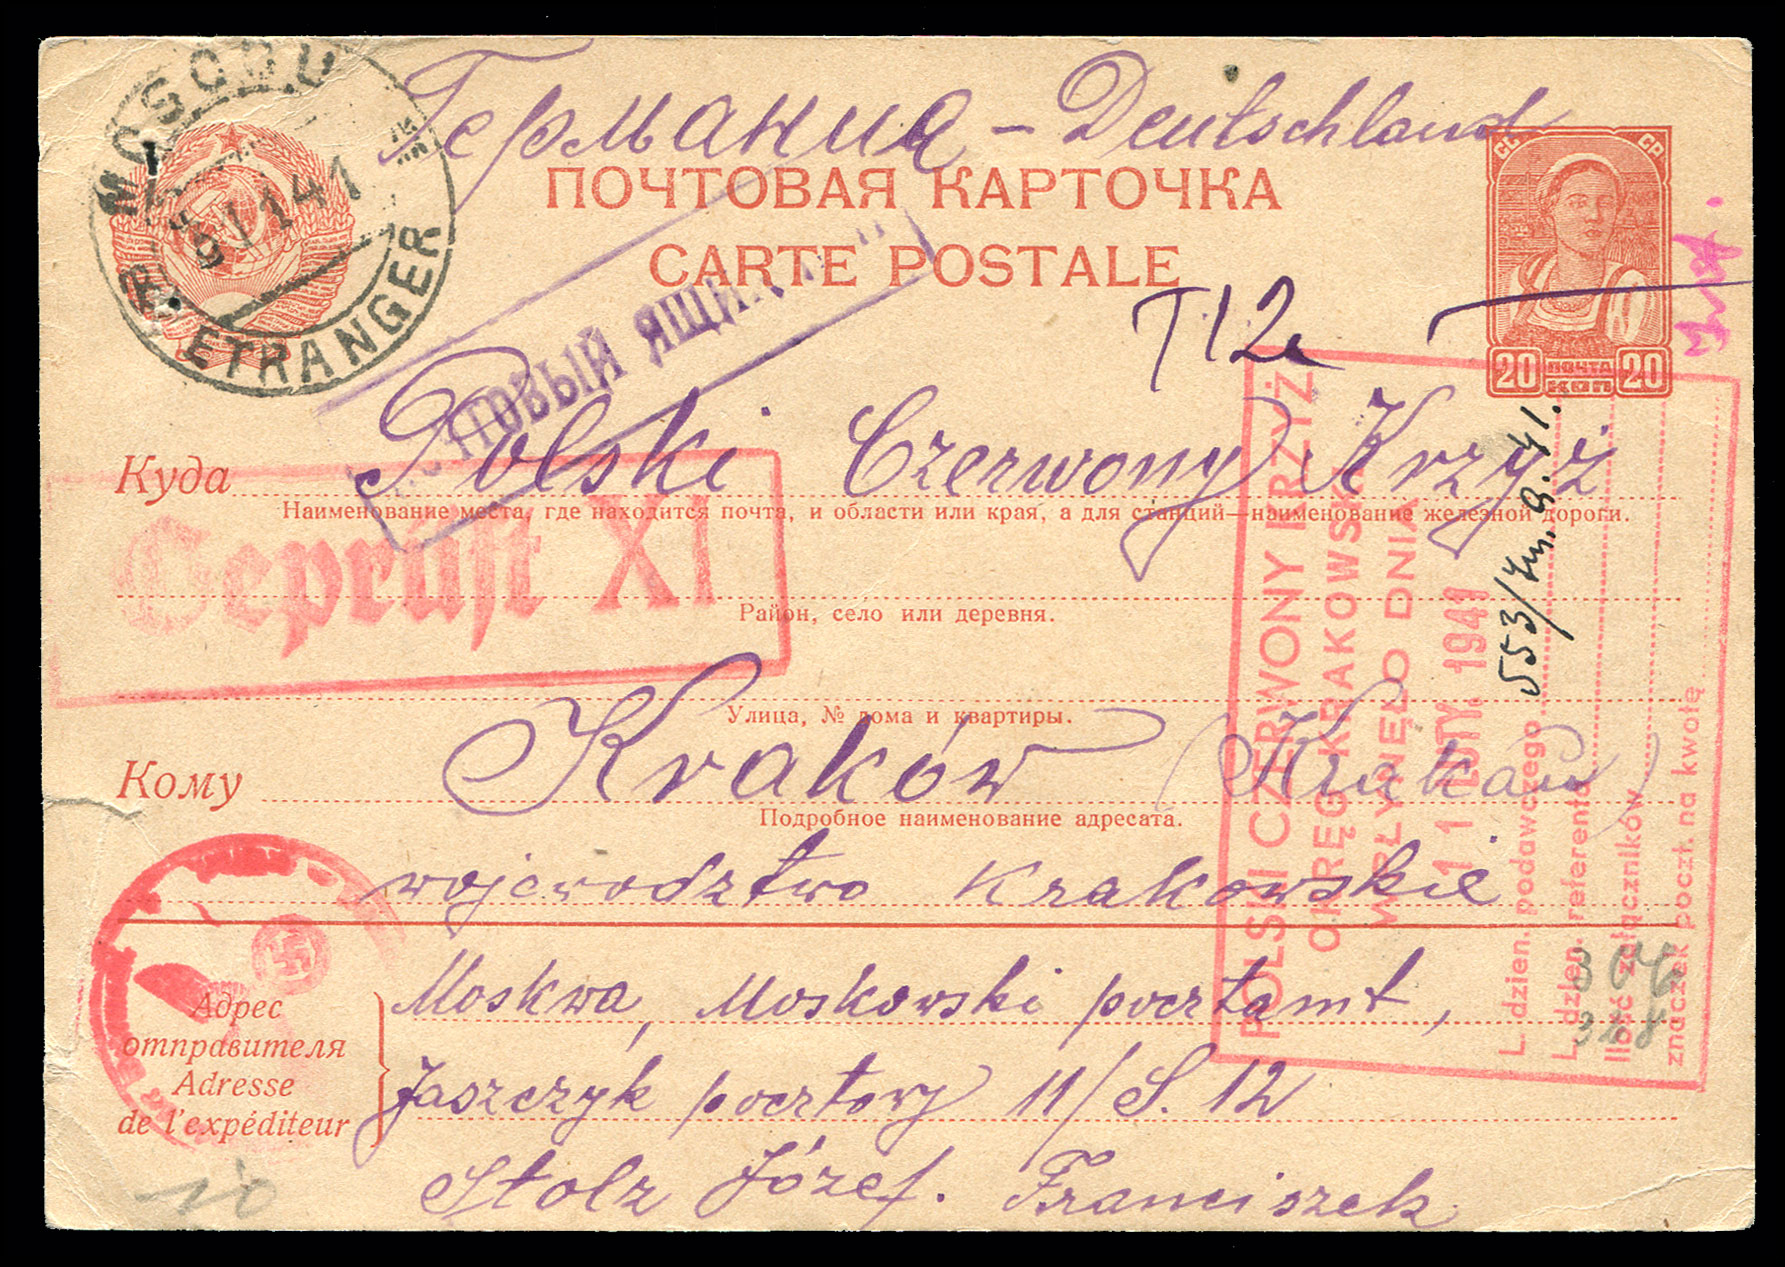 Германия - Deutschland
MOSCOU
ETRANGER
ПОЧТОВАЯ КАРТОЧКА
CARTE POSTALE
СС СР
20 ПОЧТА 20
КОП
ЯЩИК
T12
Куда Polski Czerwony Krzyż
Наименование места, где находится почта, и области или края, а для станций—наименование железной дороги.
Geprüft XI
Район, село или деревня.
Улица, № дома и квартиры.
Кому Kraków (Krakau)
Подробное наименование адресата.
województwo Krakowskie
Адрес
отправителя
Adresse
de l'expéditeur
Moskwa, Moskowski pocztamt,
Jaszczyk pocztowy 11/S. 12
Stolz Józef. Franciszek
10
POLSKI CZERWONY KRZYŻ
OKRĘG KRAKOWSKI
WPŁYNĘŁO DNIA
11 LUTY. 1941
L. dzien. podawczego
L. dzien. referenta
Ilość załączników
znaczek poczt. na kwotę